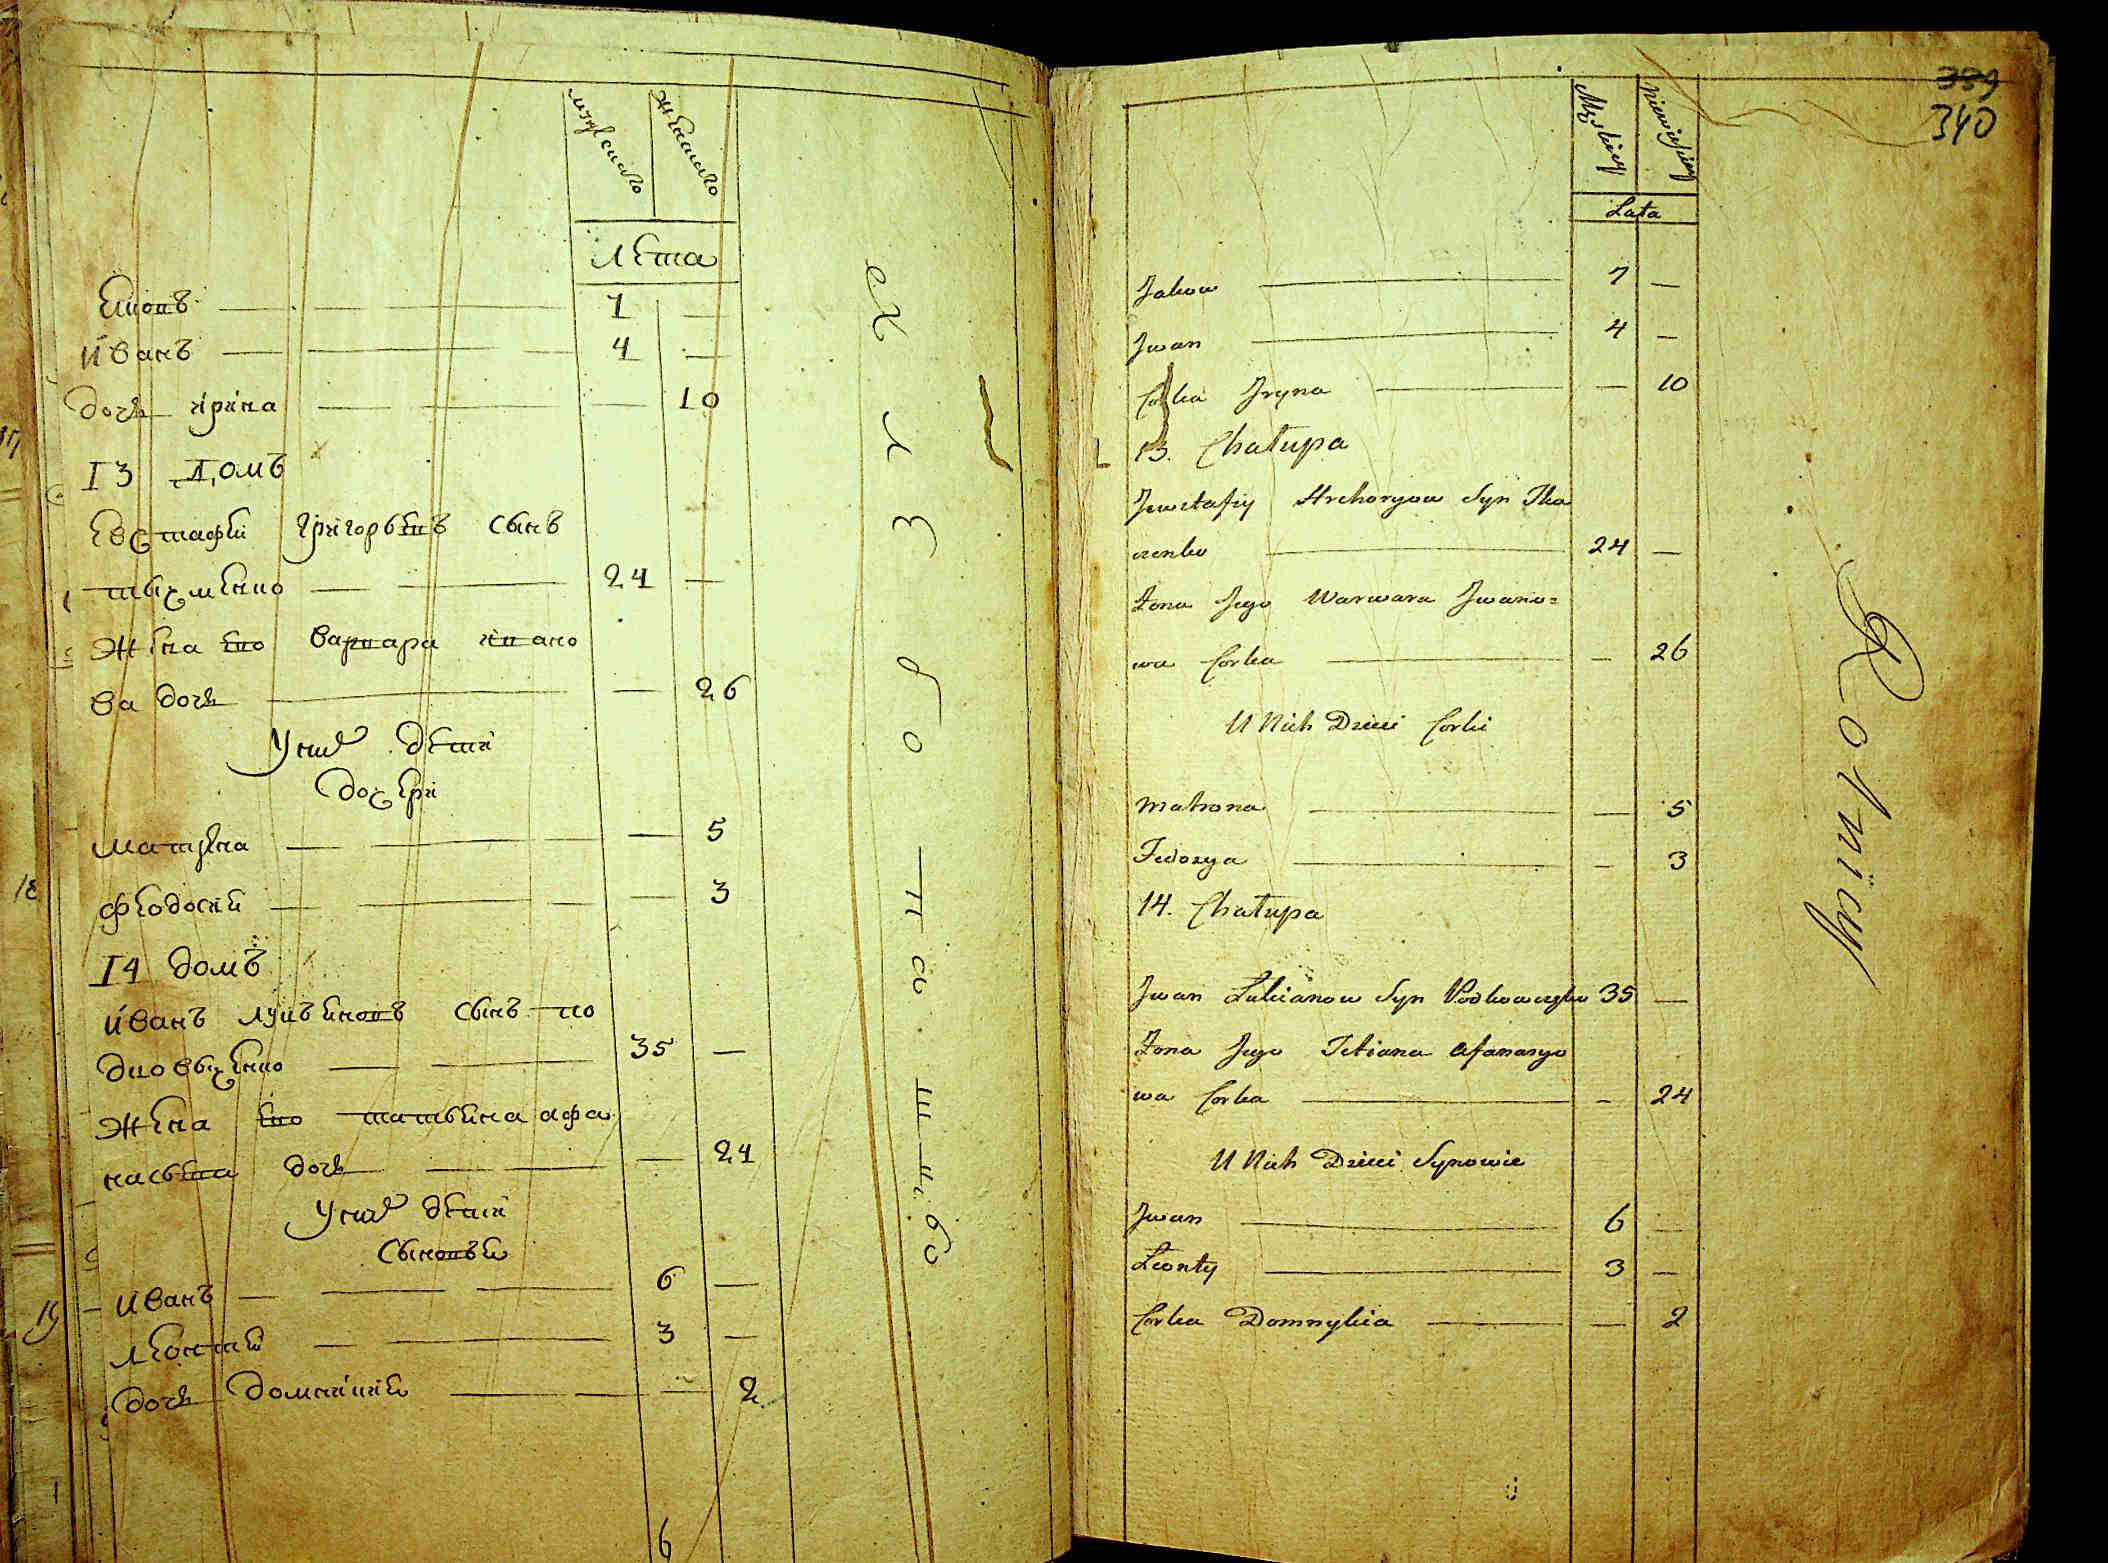 мужскаго
женскаго
лета
Іаковъ 7
Иванъ 4
дочь ирина 10
13 домъ
Евстафеи григорьевъ сынъ
ткаченко 24
жена ево варвара ивано
ва дочь 26
У них дети
дочери
матрена 5
феодосия 3
14 домъ
Иванъ лукъяновъ сынъ по
дковыченко 35
жена ево татьяна афа
насьева дочь 24
У них дети
сыновья
Иванъ 6
леонтей 3
дочь домникия 2
6
339
340
Męskiey
niewieściey
Lata
Jakow 7
Jwan 4
Corka Jryna 10
13. Chałupa
Jewstafiy Hrehoryow Syn Tka
czenko 24
Żona Jego Warwara Jwano=
wa Corka 26
U Nich Dzieci Corki
Matrona 5
Fedosya 3
14. Chałupa
Jwan Łukianow Syn Podkowczenko 35
Żona Jego Tetiana Afanasyo
wa Corka 24
U Nich Dzieci Synowie
Jwan 6
Leonty 3
Corka Domnykia 2
Rolnicy